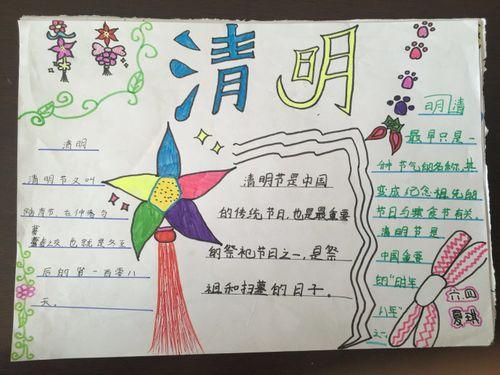 清明
清明
清明节又叫
踏青节，在仲春与
暮春之交，也就是冬至
后的第一百零八
天。
清明节是中国
的传统节日，也是最重要
的祭祀节日之一，是祭
祖和扫墓的日子。
明清
最早只是一
种节气的名称，其
变成纪念祖先的
节日与寒食节有关。
清明节是
中国重要
的“时年
八节”
之一。
六四
夏琪